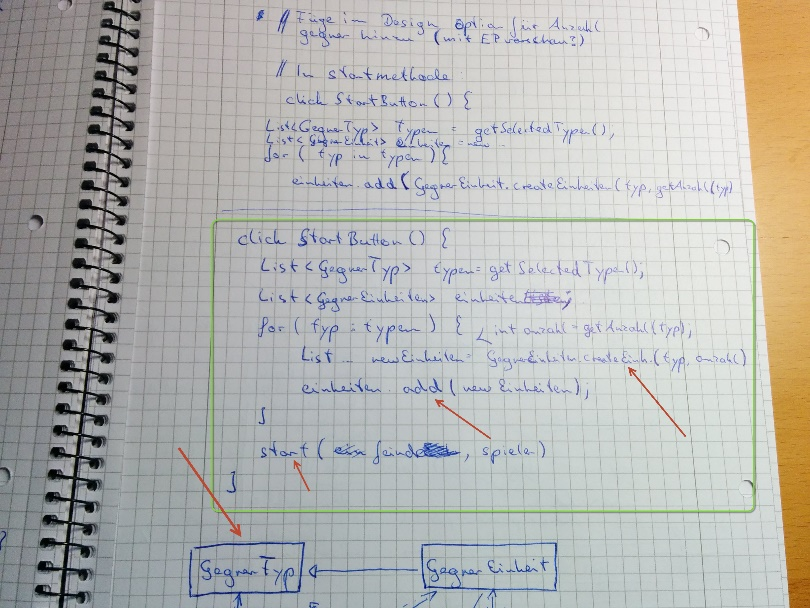 // Füge im Design Option für Anzahl
gegner hinzu (mit EP vorschau?)
// In startmethode
click StartButton () {
List<GegnerTyp> typen = getSelectedTypen();
List<GegnerEinheit> einheiten = new
for ( typ in typen ) {
einheiten.add(GegnerEinheit.createEinheiten(typ, getAnzahl(typ)
click StartButton () {
List <GegnerTyp> typen = getSelectedTypen();
List <GegnerEinheiten> einheiten;
for ( typ : typen ) { int anzahl = getAnzahl(typ);
List … newEinheiten = GegnerEinheiten.createEinh.(typ, anzahl)
einheiten.add ( newEinheiten);
}
start ( feinde, spieler)
}
GegnerTyp
GegnerEinheit